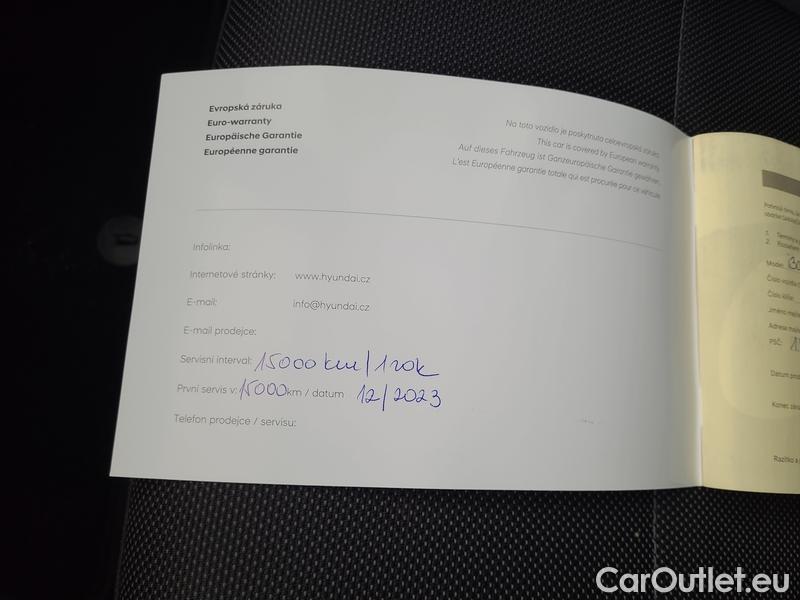 Evropská záruka
Euro-warranty
Europäische Garantie
Européenne garantie
Na toto vozidlo je poskytnuta celoevropská záruka.
This car is covered by European warranty.
Auf dieses Fahrzeug ist Ganzeuropäische Garantie gewähren.
L'est Européenne garantie totale qui est procurée pour ce véhicule
Infolinka:
Internetové stránky: www.hyundai.cz
E-mail: info@hyundai.cz
E-mail prodejce:
Servisní interval: 15000 km / 1 rok
První servis v: 15000 km / datum 12/2023
Telefon prodejce / servisu:
1.
2.
Model:
Číslo
Číslo
Jméno
Adresa
PSČ:
Datum
Konec
Razítko a
CarOutlet.eu